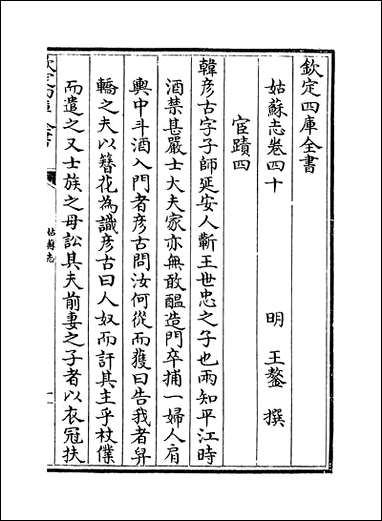 欽定四庫全書
姑蘇志卷四十
明 王鏊 撰
宦蹟四
韓彦古字子師延安人蘄王世忠之子也兩知平江時
酒禁甚嚴士大夫家亦無敢醖造門卒捕一婦人肩
輿中斗酒入門者彦古問汝何從而獲曰告我者舁
轎之夫以簪花為識彦古曰人奴而訐其主乎杖僕
而遣之又士族之母訟其夫前妻之子者以衣冠扶
姑蘇志
一